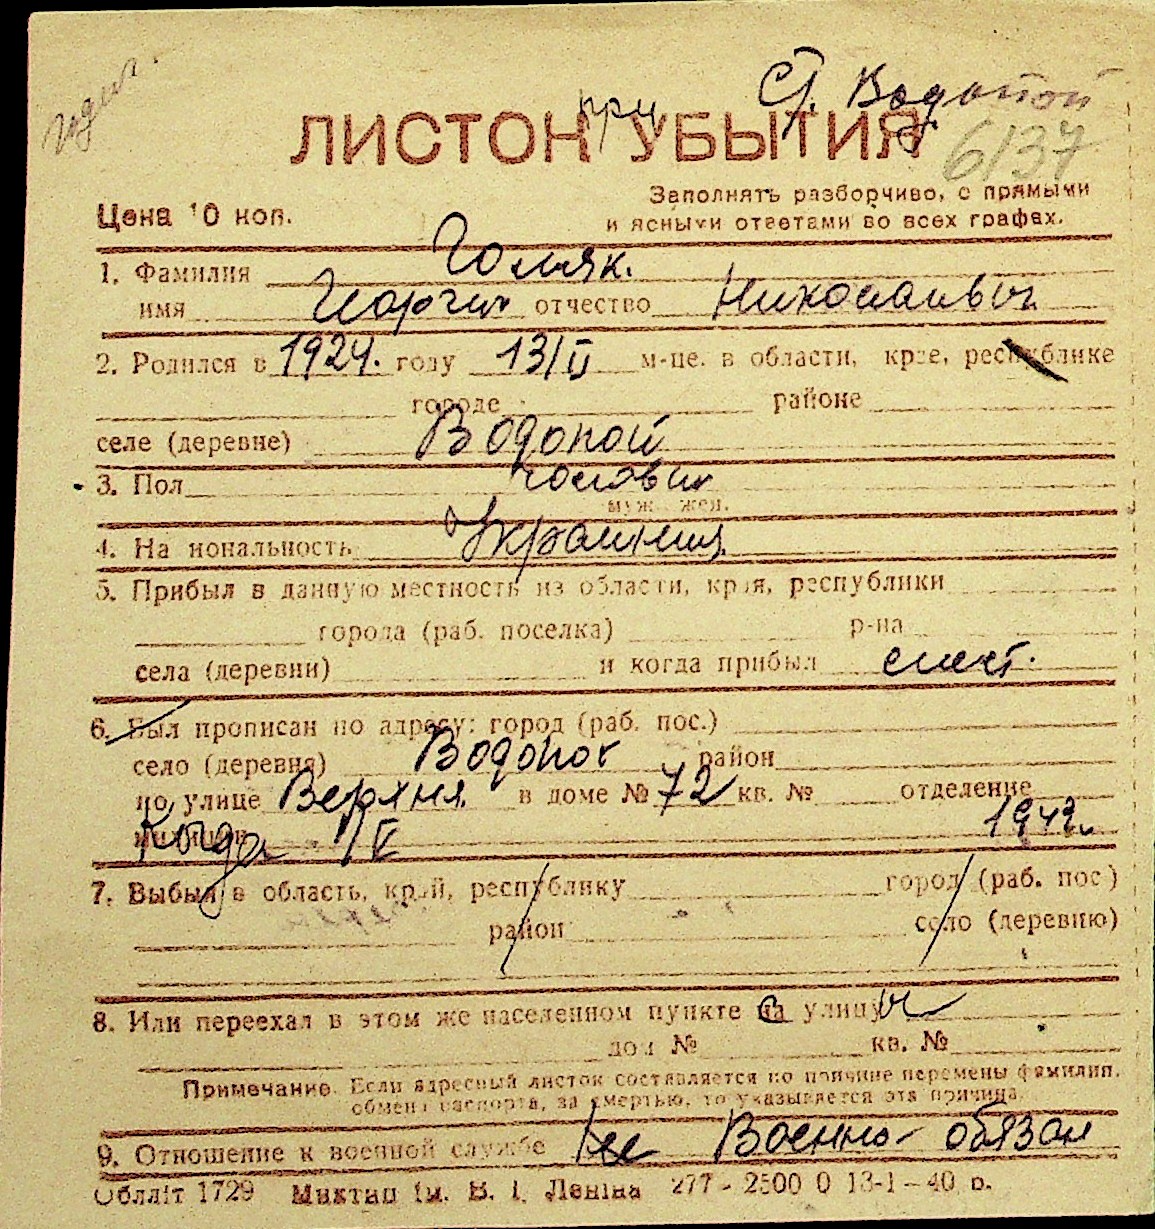 Ст. Водопой
ЛИСТОК при УБЫТИЯ
6137
Цена 10 коп.
Заполнять разборчиво, с прямыми
и ясными ответами во всех графах.
1. Фамилия Голяк.
имя Георгий отчество Николаевич
2. Родился в 1924. году 13/II м-це. в области, крае, республике
городе районе
селе (деревне) Водопой
3. Пол чоловик
муж. жен.
4. Национальность Украинец
5. Прибыл в данную местность из области, края, республики
города (раб. поселка) р-на
села (деревни) и когда прибыл
6. Был прописан по адресу: город (раб. пос.)
село (деревня) Водопой район
по улице Верхня в доме № 72 кв. № отделение
милиции Когда 1/V 1942
7. Выбыл в область, край, республику город (раб. пос)
район село (деревню)
8. Или переехал в этом же населенном пункте с улицы
дом № кв. №
Примечание. Если адресный листок составляется по причине перемены фамилии,
обмена паспорта, за смертью, то указывается эта причина.
9. Отношение к военной службе Не Военно-обязан
Облліт 1729 Миктип ім. В. І. Леніна 277 - 2500 0 13-1-40 р.